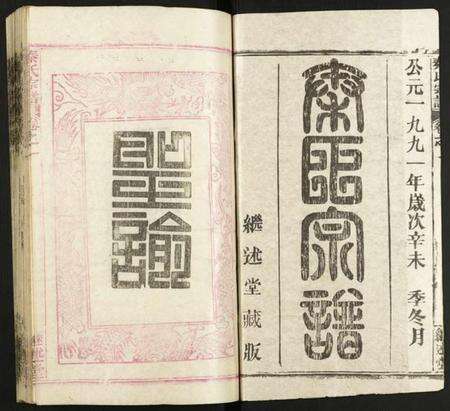 公元一九九一年歲次辛未 季冬月
秦氏宗譜
繼述堂藏版
聖諭